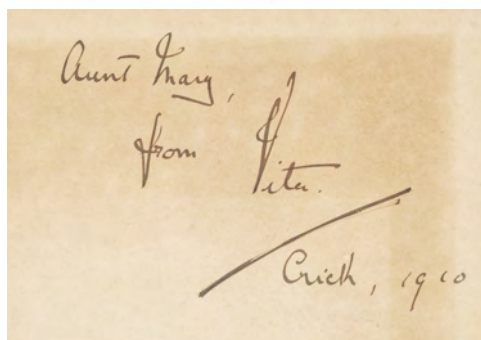 Aunt Mary,
from Vita.
Crich, 1910